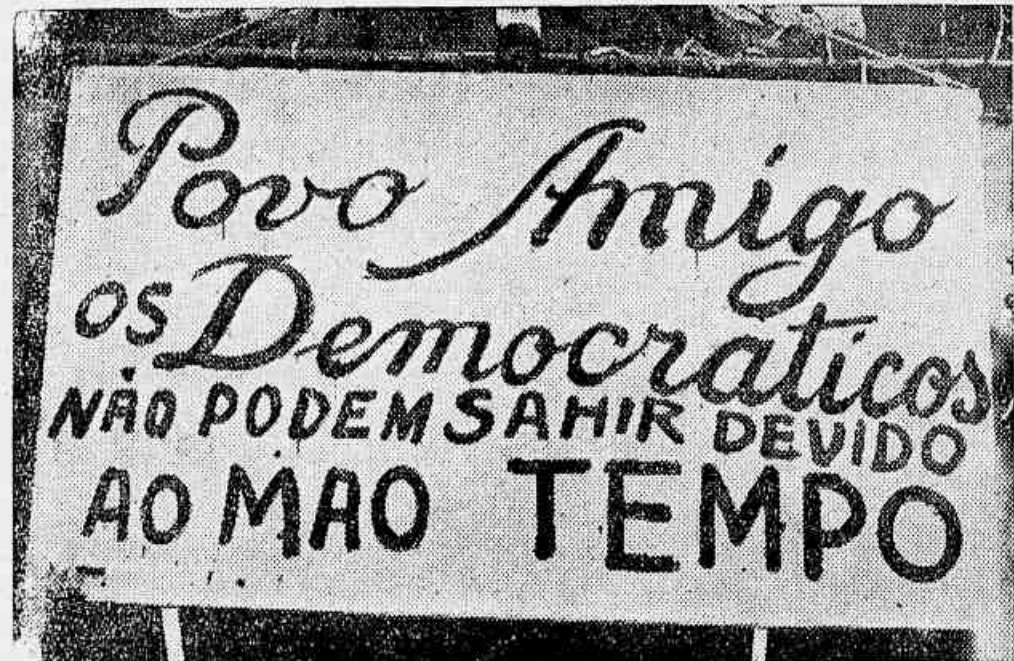 Povo Amigo
os Democraticos
NÃO PODEM SAHIR DEVIDO
AO MAO TEMPO